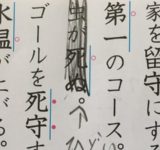 家を留守にす
第一のコース。
虫が死ぬ。
ゴールを死守す
水温が上がる。